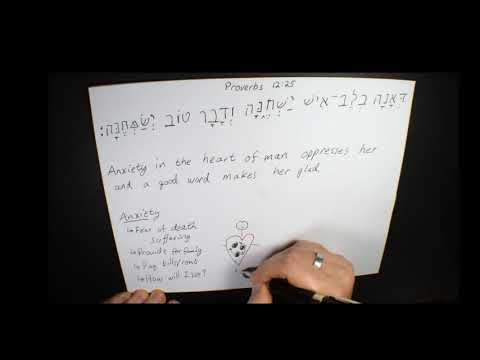 Proverbs 12:25
דְּאָגָה בְלֶב־אִישׁ יַשְׁחֶנָּה וְדָבָר טוֹב יְשַׂמְּחֶנָּה׃
Anxiety in the heart of man oppresses her
and a good word makes her glad
Anxiety
↳ Fear of death
suffering
↳ Provide for family
↳ Pay bills/rent
↳ How will I